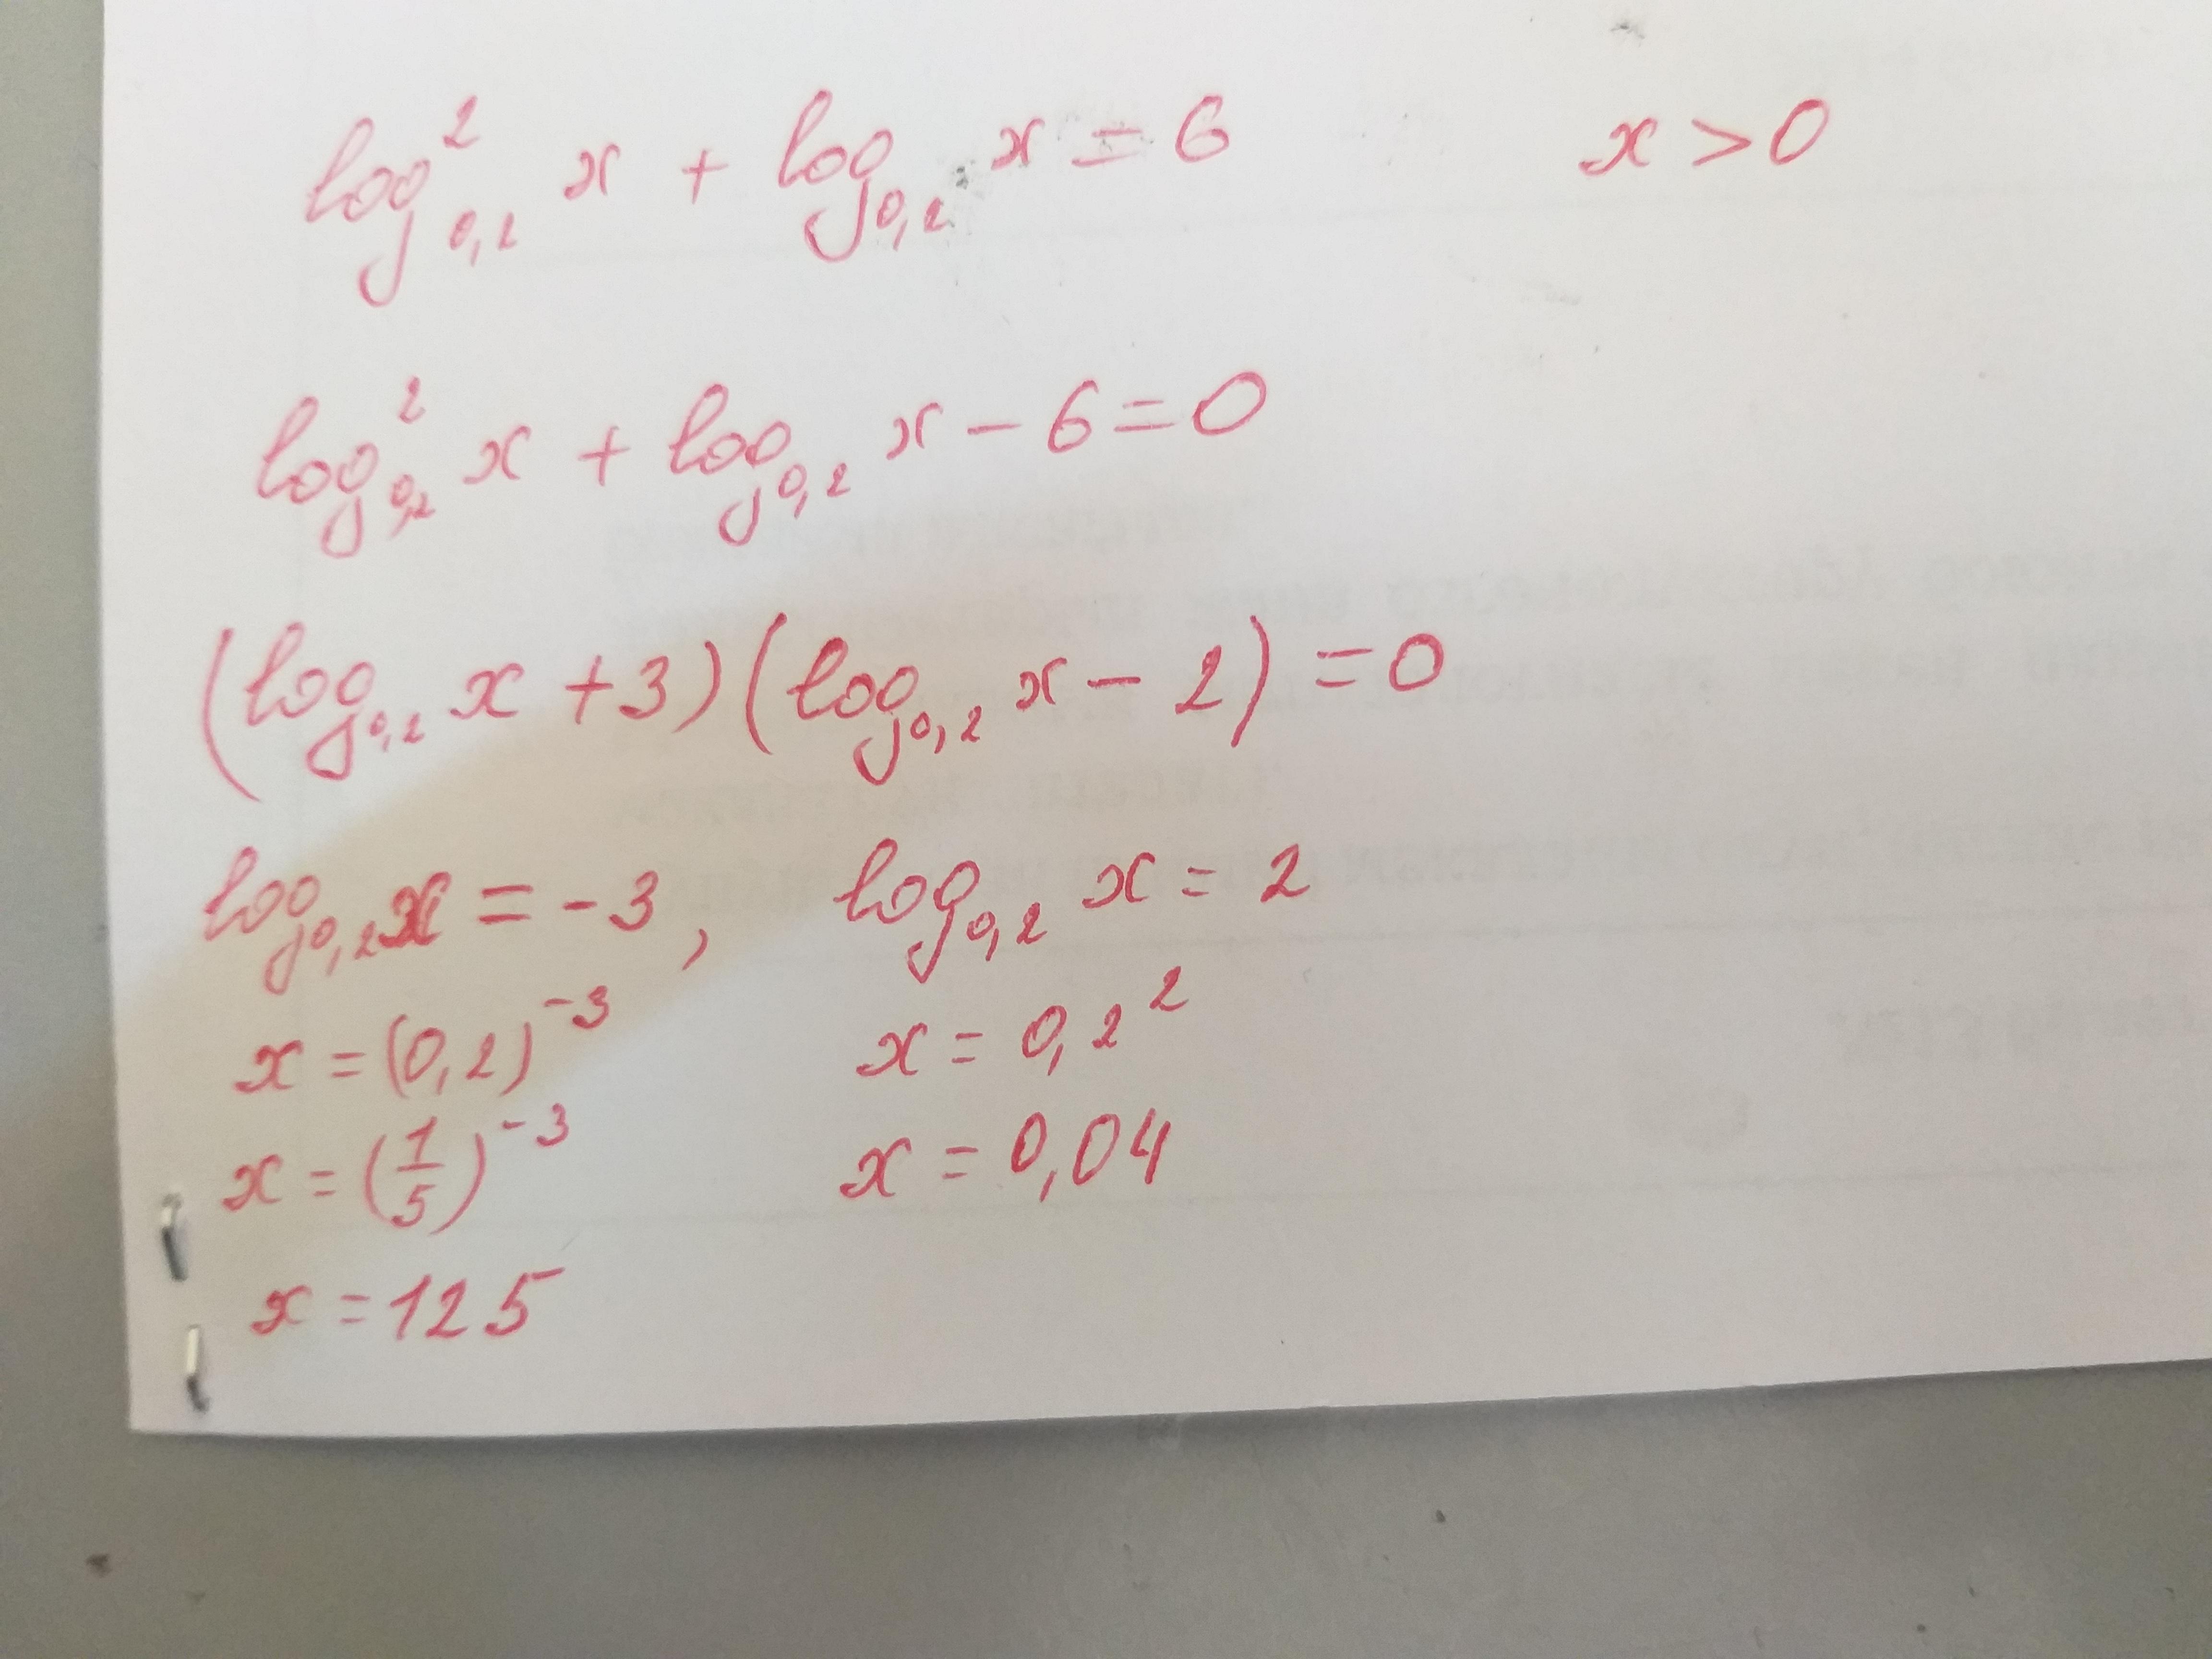 log²₀,₂ x + log₀,₂ x = 6 x > 0
log²₀,₂ x + log₀,₂ x − 6 = 0
(log₀,₂ x + 3)(log₀,₂ x − 2) = 0
log₀,₂ x = -3, log₀,₂ x = 2
x = (0,2)⁻³ x = 0,2²
x = (1/5)⁻³ x = 0,04
x = 125